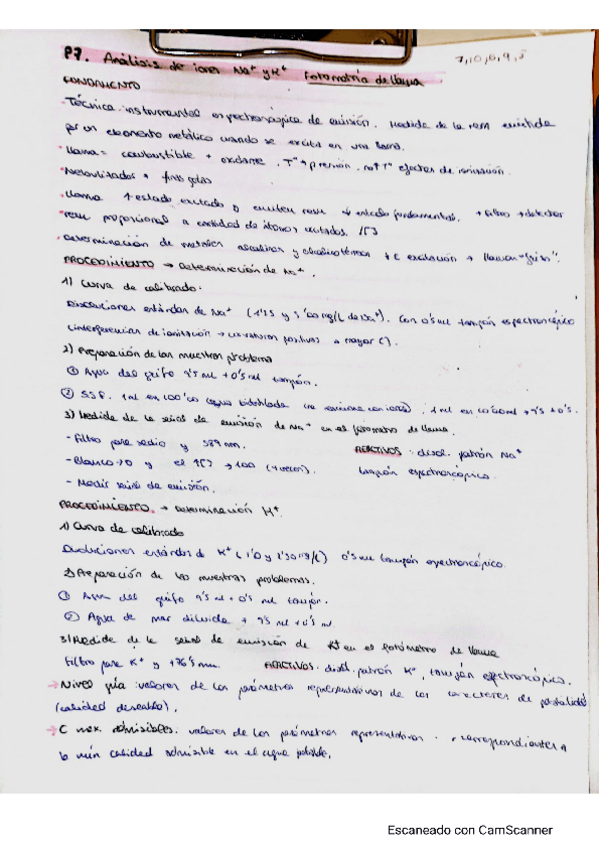 P7. Análisis de iones Na⁺ y K⁺ Fotometría de llama
7,10,6,9,8
FUNDAMENTO
- Técnica instrumental espectroscópica de emisión. Medida de la REM emitida
por un elemento metálico cuando se excita en una llama.
- llama = combustible + oxidante. Tª y presión. Tª efectos de ionización.
finas gotas
- llama ↑ estado excitado y emiten REM ↓ estado fundamental. → filtro → detector
REM proporcional a cantidad de átomos excitados. [C]
- Determinación de metales alcalinos y alcalinotérreos ↓ E excitación → llamas "frías".
PROCEDIMIENTO → Determinación de Na⁺.
1) Curva de calibrado.
Disoluciones estándar de Na⁺ (1'25 y 5'00 mg/L de Na⁺). Con 0'5 mL tampón espectroscópico
(interferencias de ionización → curvaturas positivas a mayor C).
2) Preparación de las muestras problema
① Agua del grifo 9'5 mL + 0'5 mL tampón.
② S.S.F. 1 mL en 100'00 (agua bidestilada). 1 mL en 10'00 mL + 9'5 + 0'5.
3) Medida de la señal de emisión de Na⁺ en el fotómetro de llama.
- Filtro para sodio y 589 nm.
REACTIVOS: disol. patrón Na⁺
- Blanco → 0 y el [C] → 100 (4 veces).
tampón espectroscópico.
- Medir señal de emisión.
PROCEDIMIENTO. → Determinación K⁺.
1) Curva de calibrado
Disoluciones estándar de K⁺ (1'0 y 2'50 mg/L) 0'5 mL tampón espectroscópico.
2) Preparación de las muestras problemas.
① Agua del grifo 9'5 mL + 0'5 mL tampón.
② Agua de mar diluida + 9'5 mL + 0'5 mL
3) Medida de la señal de emisión de K⁺ en el fotómetro de llama
Filtro para K⁺ y 766'5 nm. REACTIVOS: disol. patrón K⁺, tampón espectroscópico.
→ Nivel guía: valores de los parámetros representativos de los caracteres de potabilidad
(calidad deseable).
→ C máx. admisibles. valores de los parámetros representativos correspondientes a
la mín calidad admisible en el agua potable.
Escaneado con CamScanner